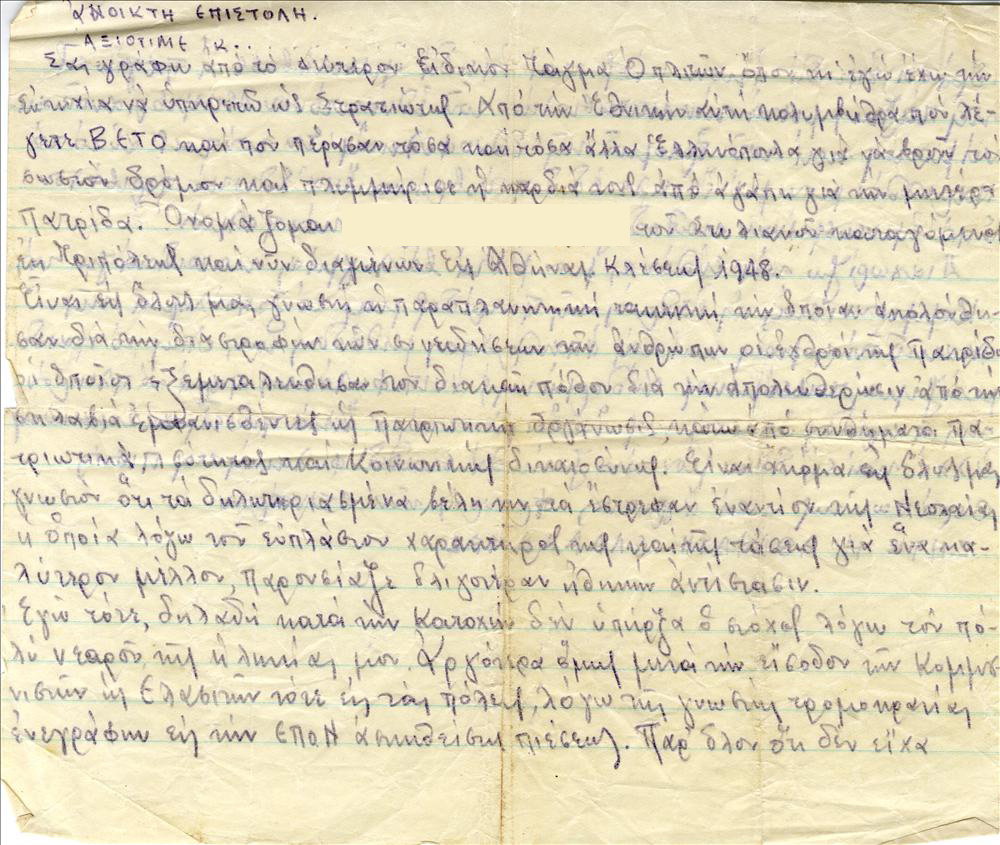 ΑΝΟΙΚΤΗ ΕΠΙΣΤΟΛΗ.
ΑΞΙΟΤΙΜΕ κ..
Σας γράφω από το Δεύτερον Ειδικόν Τάγμα Οπλιτών, όπου κι' εγώ έχω την
ευτυχία να υπηρετώ ως Στρατιώτης. Από την Εθνικήν αυτή κολυμβήθρα που λέ-
γετε ΒΕΤΟ και που πέρασαν τόσα και τόσα άλλα Ελληνόπουλα για να βρουν τον
σωστόν δρόμον και πλημμύρισε η καρδιά τους από αγάπη για την μητέρα
Πατρίδα. Ονομάζομαι του Στυλιανού καταγόμενος
εκ Τριπόλεως και νυν διαμένων εις Αθήνας. Κλάσεως 1948.
Είναι εις όλους μας γνωστή η παραπλανητική τακτική την οποίαν ακολούθη-
σαν διά την διαστροφήν των συνειδήσεων των ανθρώπων οι εχθροί της Πατρίδος
οι οποίοι εξεμεταλεύθησαν τον διακαή πόθον διά την απολευθέρωσιν από την
σκλαβιά εμφανισθέντες ως Πατριωτική οργάνωσις, κάτω από συνθήματα Πα-
τριωτικά, ισότητος και Κοινωνικής δικαιοσύνης. Είναι ακόμα εις όλους μας
γνωστόν ότι τα δηλητηριασμένα βέλη των τα έστρεφαν εναντίον της Νεολαίας
η οποία λόγω του ευπλάστου χαρακτήρος της και της τάσεως για ένα κα-
λύτερον μέλλον, παρουσίαζε ολιγοτέραν ηθικήν αντίστασιν.
Εγώ τότε, δηλαδή κατά την Κατοχήν δεν υπήρξα ο στόχος λόγω του πο-
λύ νεαρού της ηλικίας μου. Αργότερα όμως μετά την είσοδον των Κομμου-
νιστών ως Ελασιτών τότε εις τας πόλεις, λόγω της γνωστής τρομοκρατίας
ενεγράφην εις την ΕΠΟΝ ασκηθείσης πιέσεως. Παρ' όλον ότι δεν είχα